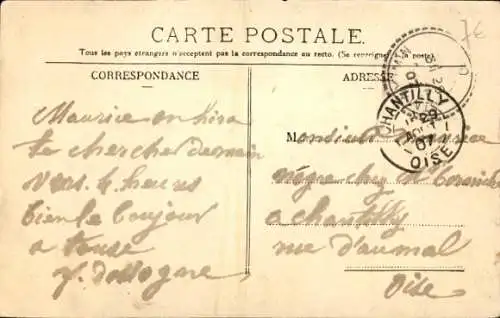 7€
CARTE POSTALE.
Tous les pays étrangers n'acceptent pas la correspondance au recto. (Se renseigner à la poste).
CORRESPONDANCE
ADRESSE
Maurice on hira
te chercher demain
vers 4 heures
bien le bonjour
a touse
Monsieur Maurice
nègre chez Mr
a chantilly
rue d'aumal
Oise
CHANTILLY
29
AOUT
07
OISE